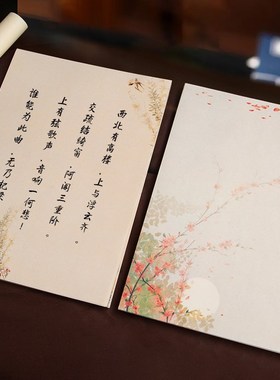 西北有高楼，上与浮云齐
交疏结绮窗，阿阁三重阶
上有弦歌声，音响一何悲！
谁能为此曲，无乃杞梁